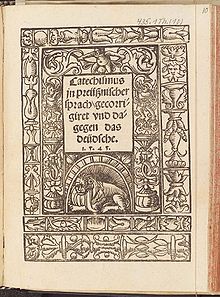 Catechismus
jn preüßnischer
sprach, gecorri-
giret vnd da-
gegen das
deüdsche.
1. 5. 4 5.